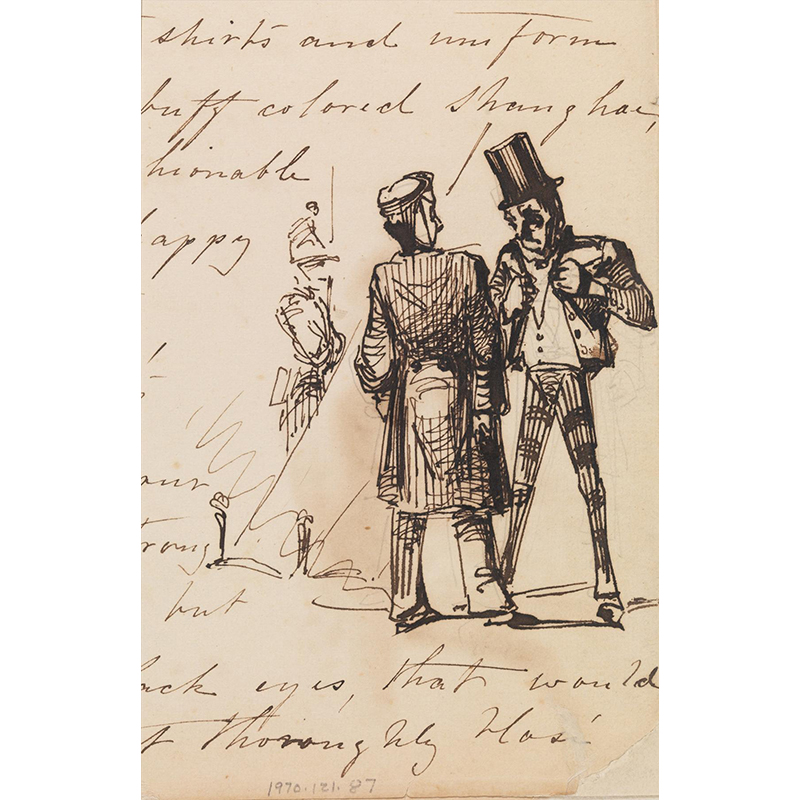 shirts and uniform
buff colored shanghae,
hionable
appy
our
rong
but
ack eyes, that would
t thoroughly blas
1970.121.87